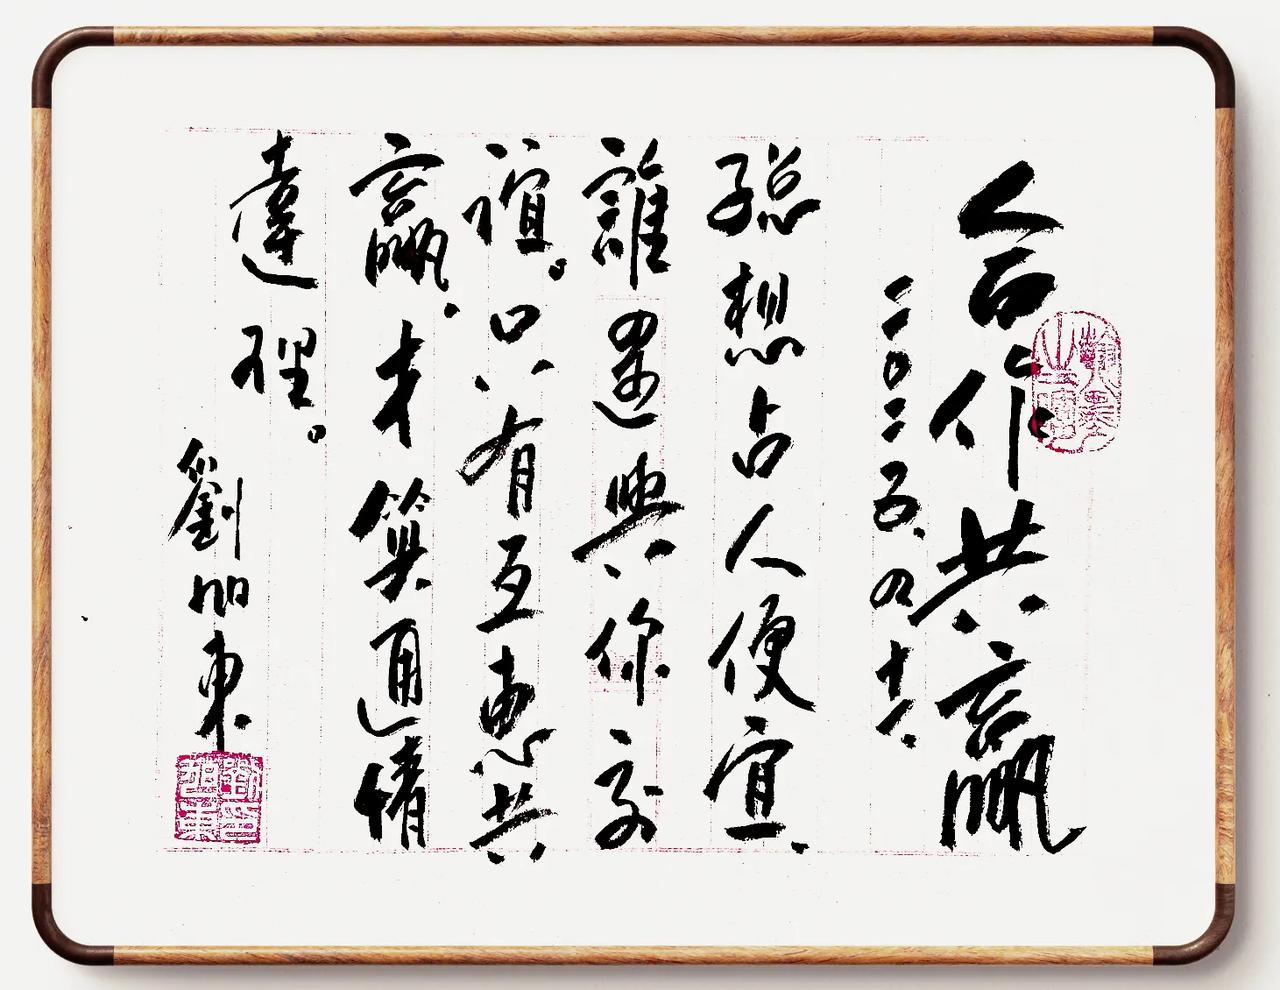 合作共贏
二〇二五.九.
總想占人便宜、
誰還與你交
誼。只有互惠共
贏.才算通情
達理。
劉旭東
劉印旭東